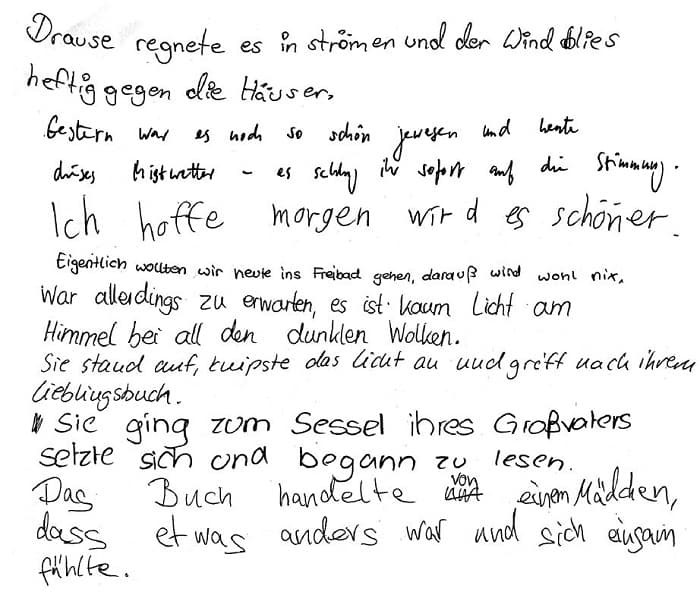 Drause regnete es in strömen und der Wind blies
heftig gegen die Häuser,
Gestern war es noch so schön gewesen und heute
dieses Mistwetter – es schlug ihr sofort auf die Stimmung.
Ich hoffe morgen wird es schöner.
Eigentlich wollten wir heute ins Freibad gehen, darauß wird wohl nix.
War allerdings zu erwarten, es ist kaum Licht am
Himmel bei all den dunklen Wolken.
Sie stand auf, knipste das Licht an und griff nach ihrem
Lieblingsbuch.
Sie ging zum Sessel ihres Großvaters
setzte sich und begann zu lesen.
Das Buch handelte von einem Mädchen,
dass etwas anders war und sich einsam
fühlte.